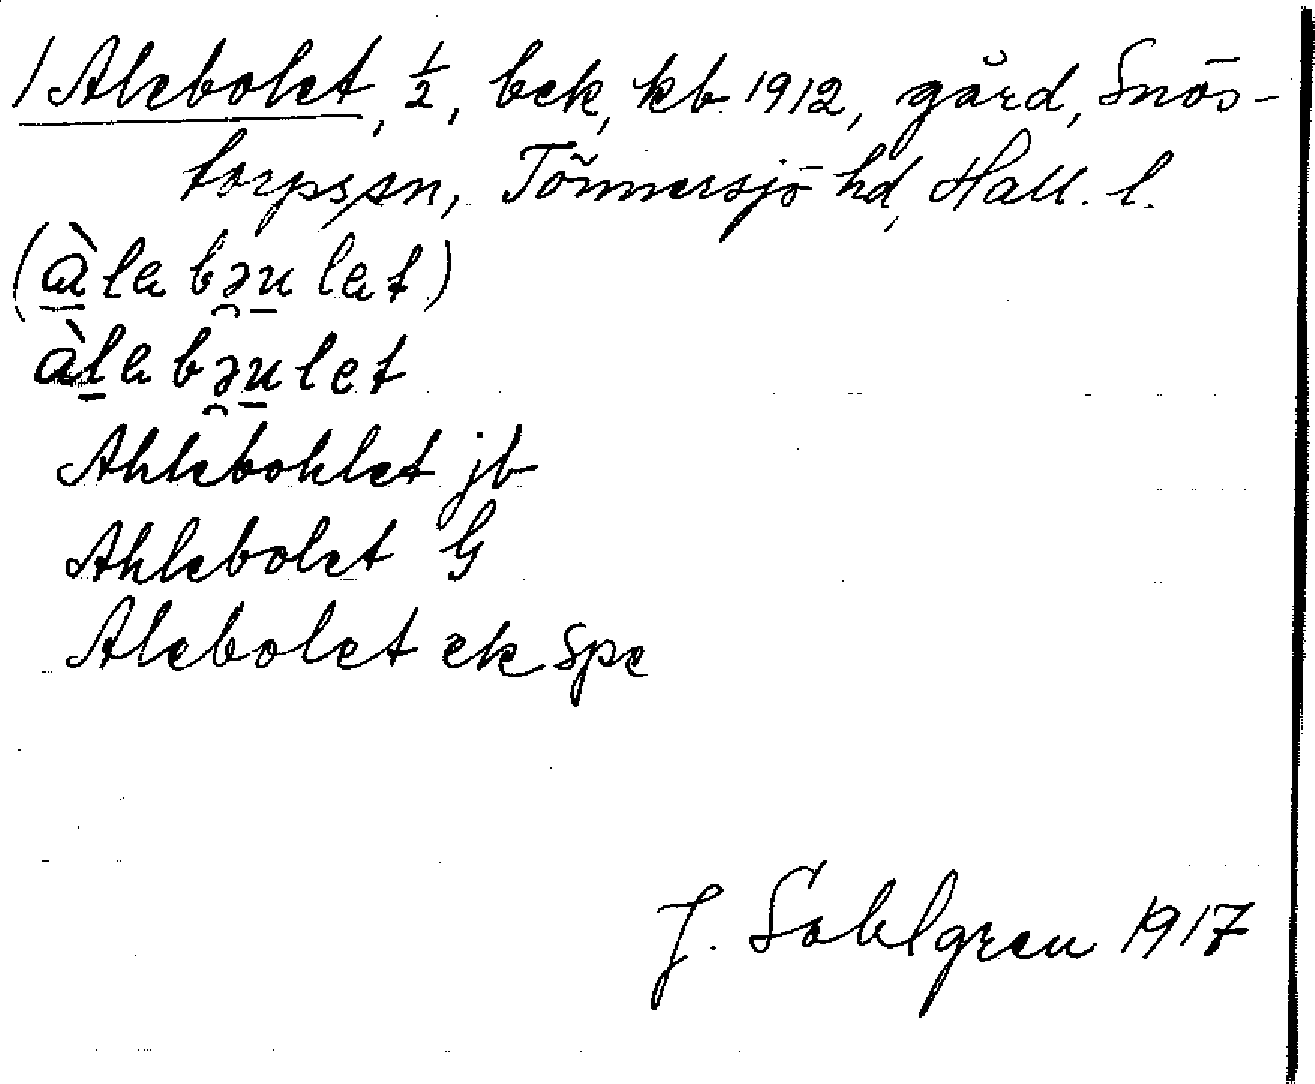 1 Alebolet, ½, bek, kb 1912, gård, Snös-
torps sn, Tönnersjö hd, Hall. l.
(àlabəulat)
àlabəulet
Ahlebohlet jb
Ahlebolet G
Alebolet ek Spe
J. Sahlgren 1917